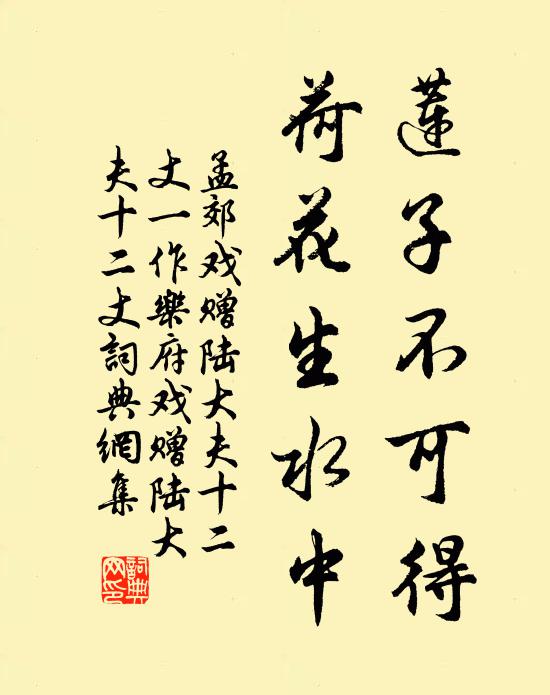 蓮子不可得
荷花生水中
孟郊戏赠陆大夫十二
丈一作樂府戏赠陆大
夫十二丈詞典網集
詞典网印